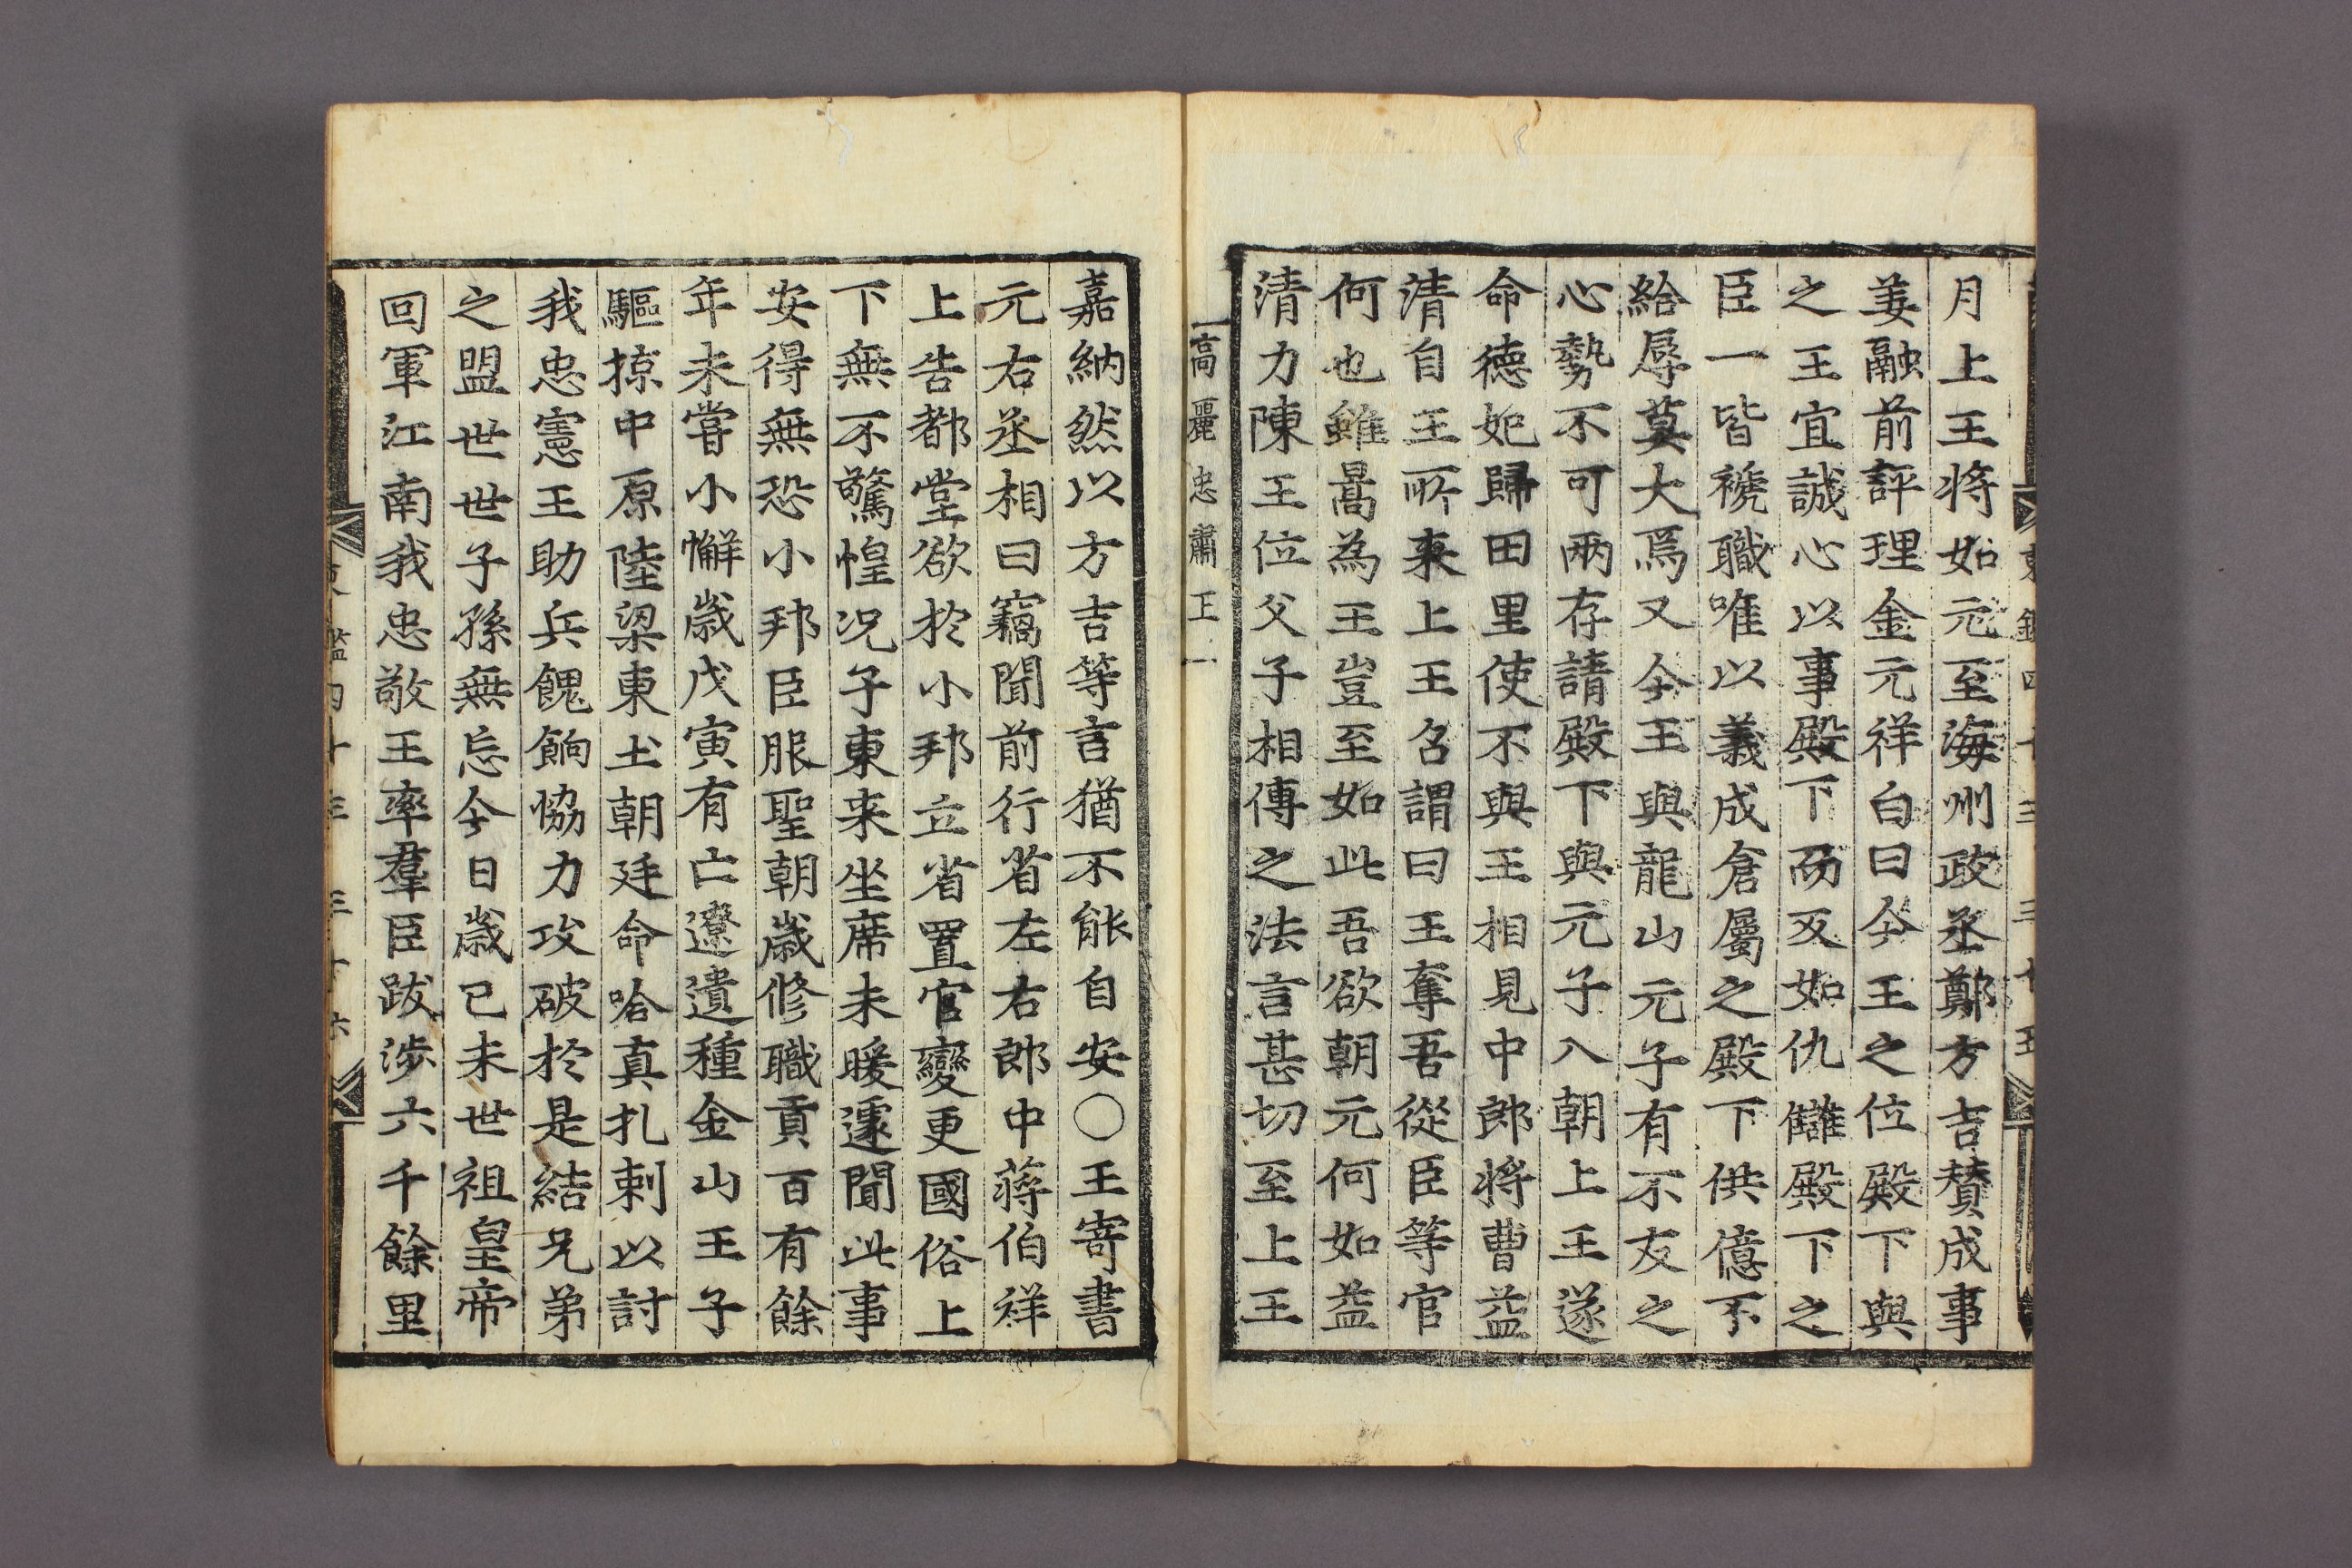 月上王將如元至海州政丞鄭方吉賛成事
姜融前評理金元祥白曰今王之位殿下與
之王宜誠心以事殿下而反如仇讎殿下之
臣一皆褫職唯以義成倉屬之殿下供億不
給辱莫大焉又今王與龍山元子有不友之
心勢不可兩存請殿下與元子入朝上王遂
命德妃歸田里使不與王相見中郎將曹益
清自王所来上王召謂曰王奪吾從臣等官
何也雖暠為王豈至如此吾欲朝元何如益
清力陳王位父子相傳之法言甚切至上王
高麗忠肅王一
嘉納然以方吉等言猶不能自安○王寄書
元右丞相曰竊聞前行省左右郎中蔣伯祥
上告都堂欲於小邦立省置官變更國俗上
下無不驚惶況子東来坐席未暖遽聞此事
安得無恐小邦臣服聖朝歲修職貢百有餘
年未嘗小懈歲戊寅有亡遼遺種金山王子
驅掠中原陸梁東土朝廷命哈真扎剌以討
我忠憲王助兵餽餉恊力攻破於是結兄弟
之盟世世子孫無忘今日歲已未世祖皇帝
回軍江南我忠敬王率羣臣跋涉六千餘里